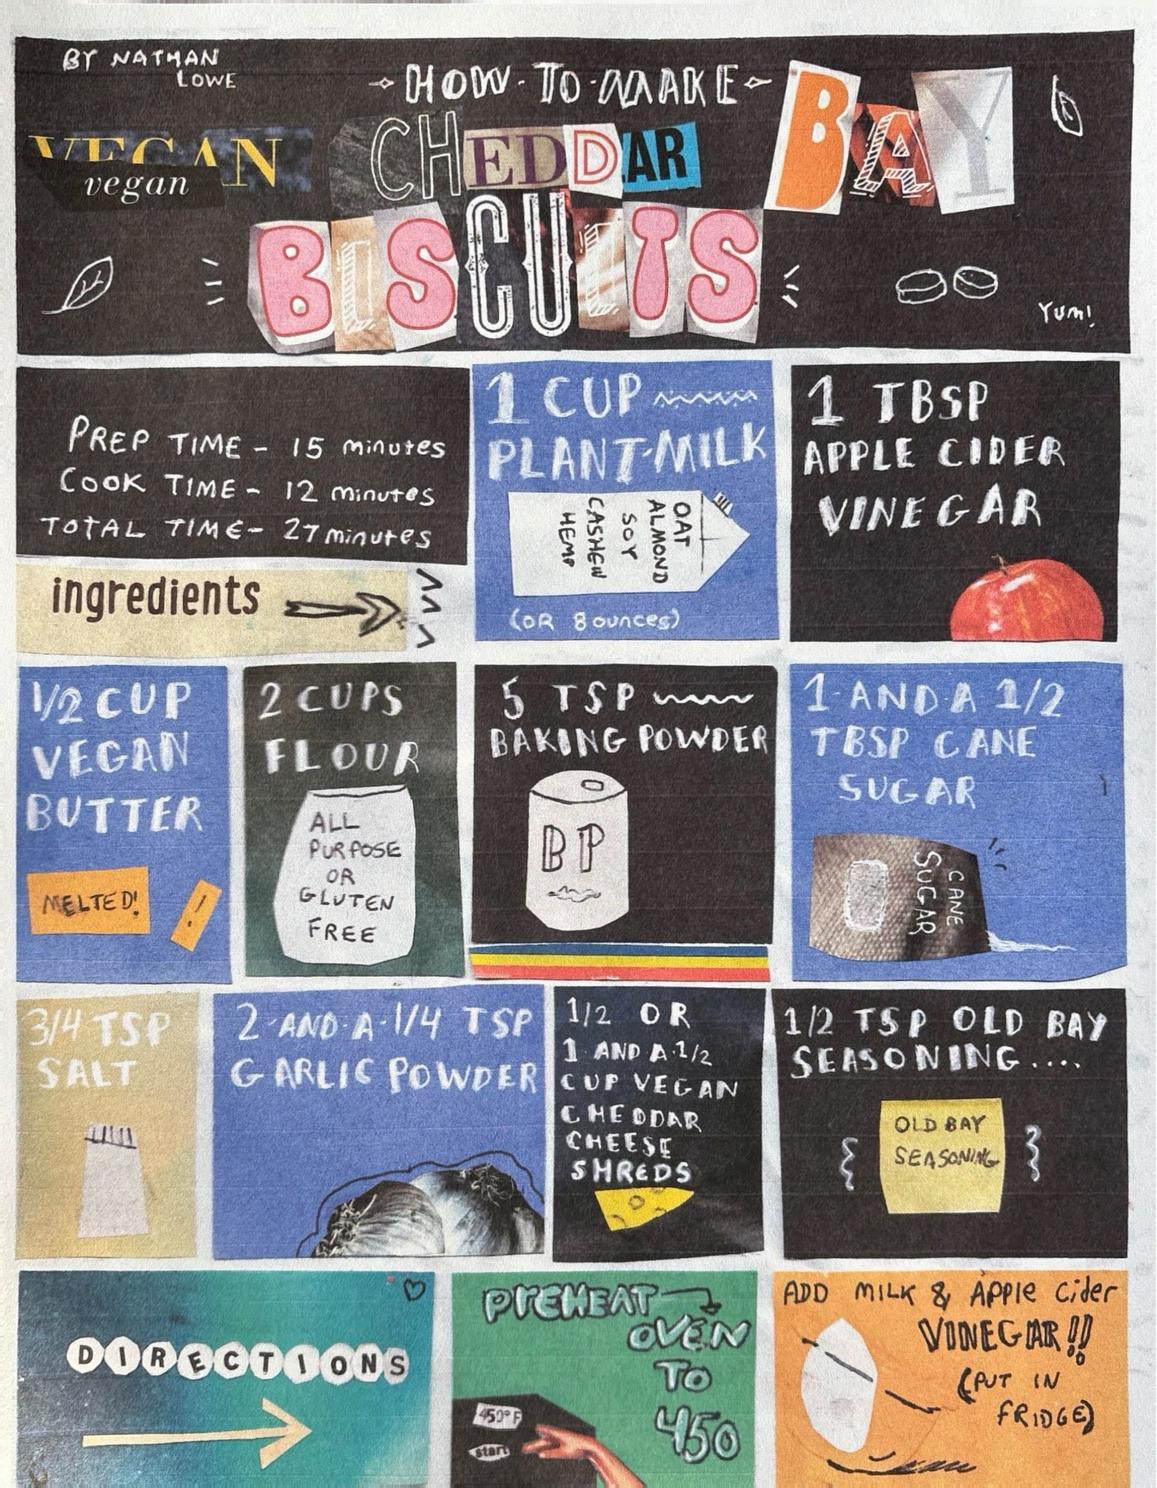 BY NATHAN
LOWE
HOW-TO-MAKE
VEGAN
vegan
CHEDDAR
BAY
BISCUITS
Yum!
PREP TIME - 15 minutes
COOK TIME - 12 minutes
TOTAL TIME - 27 minutes
ingredients
1 CUP
PLANT-MILK
OAT
ALMOND
SOY
CASHEW
HEMP
(OR 8 ounces)
1 TBSP
APPLE CIDER
VINEGAR
1/2 CUP
VEGAN
BUTTER
MELTED!
!
2 CUPS
FLOUR
ALL
PURPOSE
OR
GLUTEN
FREE
5 TSP
BAKING POWDER
BP
1-AND-A 1/2
TBSP CANE
SUGAR
CANE
SUGAR
3/4 TSP
SALT
2-AND-A-1/4 TSP
GARLIC POWDER
1/2 OR
1 AND A-1/2
CUP VEGAN
CHEDDAR
CHEESE
SHREDS
1/2 TSP OLD BAY
SEASONING....
OLD BAY
SEASONING
DIRECTIONS
PREHEAT
OVEN
TO
450
450°F
start
ADD MILK & Apple Cider
VINEGAR!!
(PUT IN
FRIDGE)